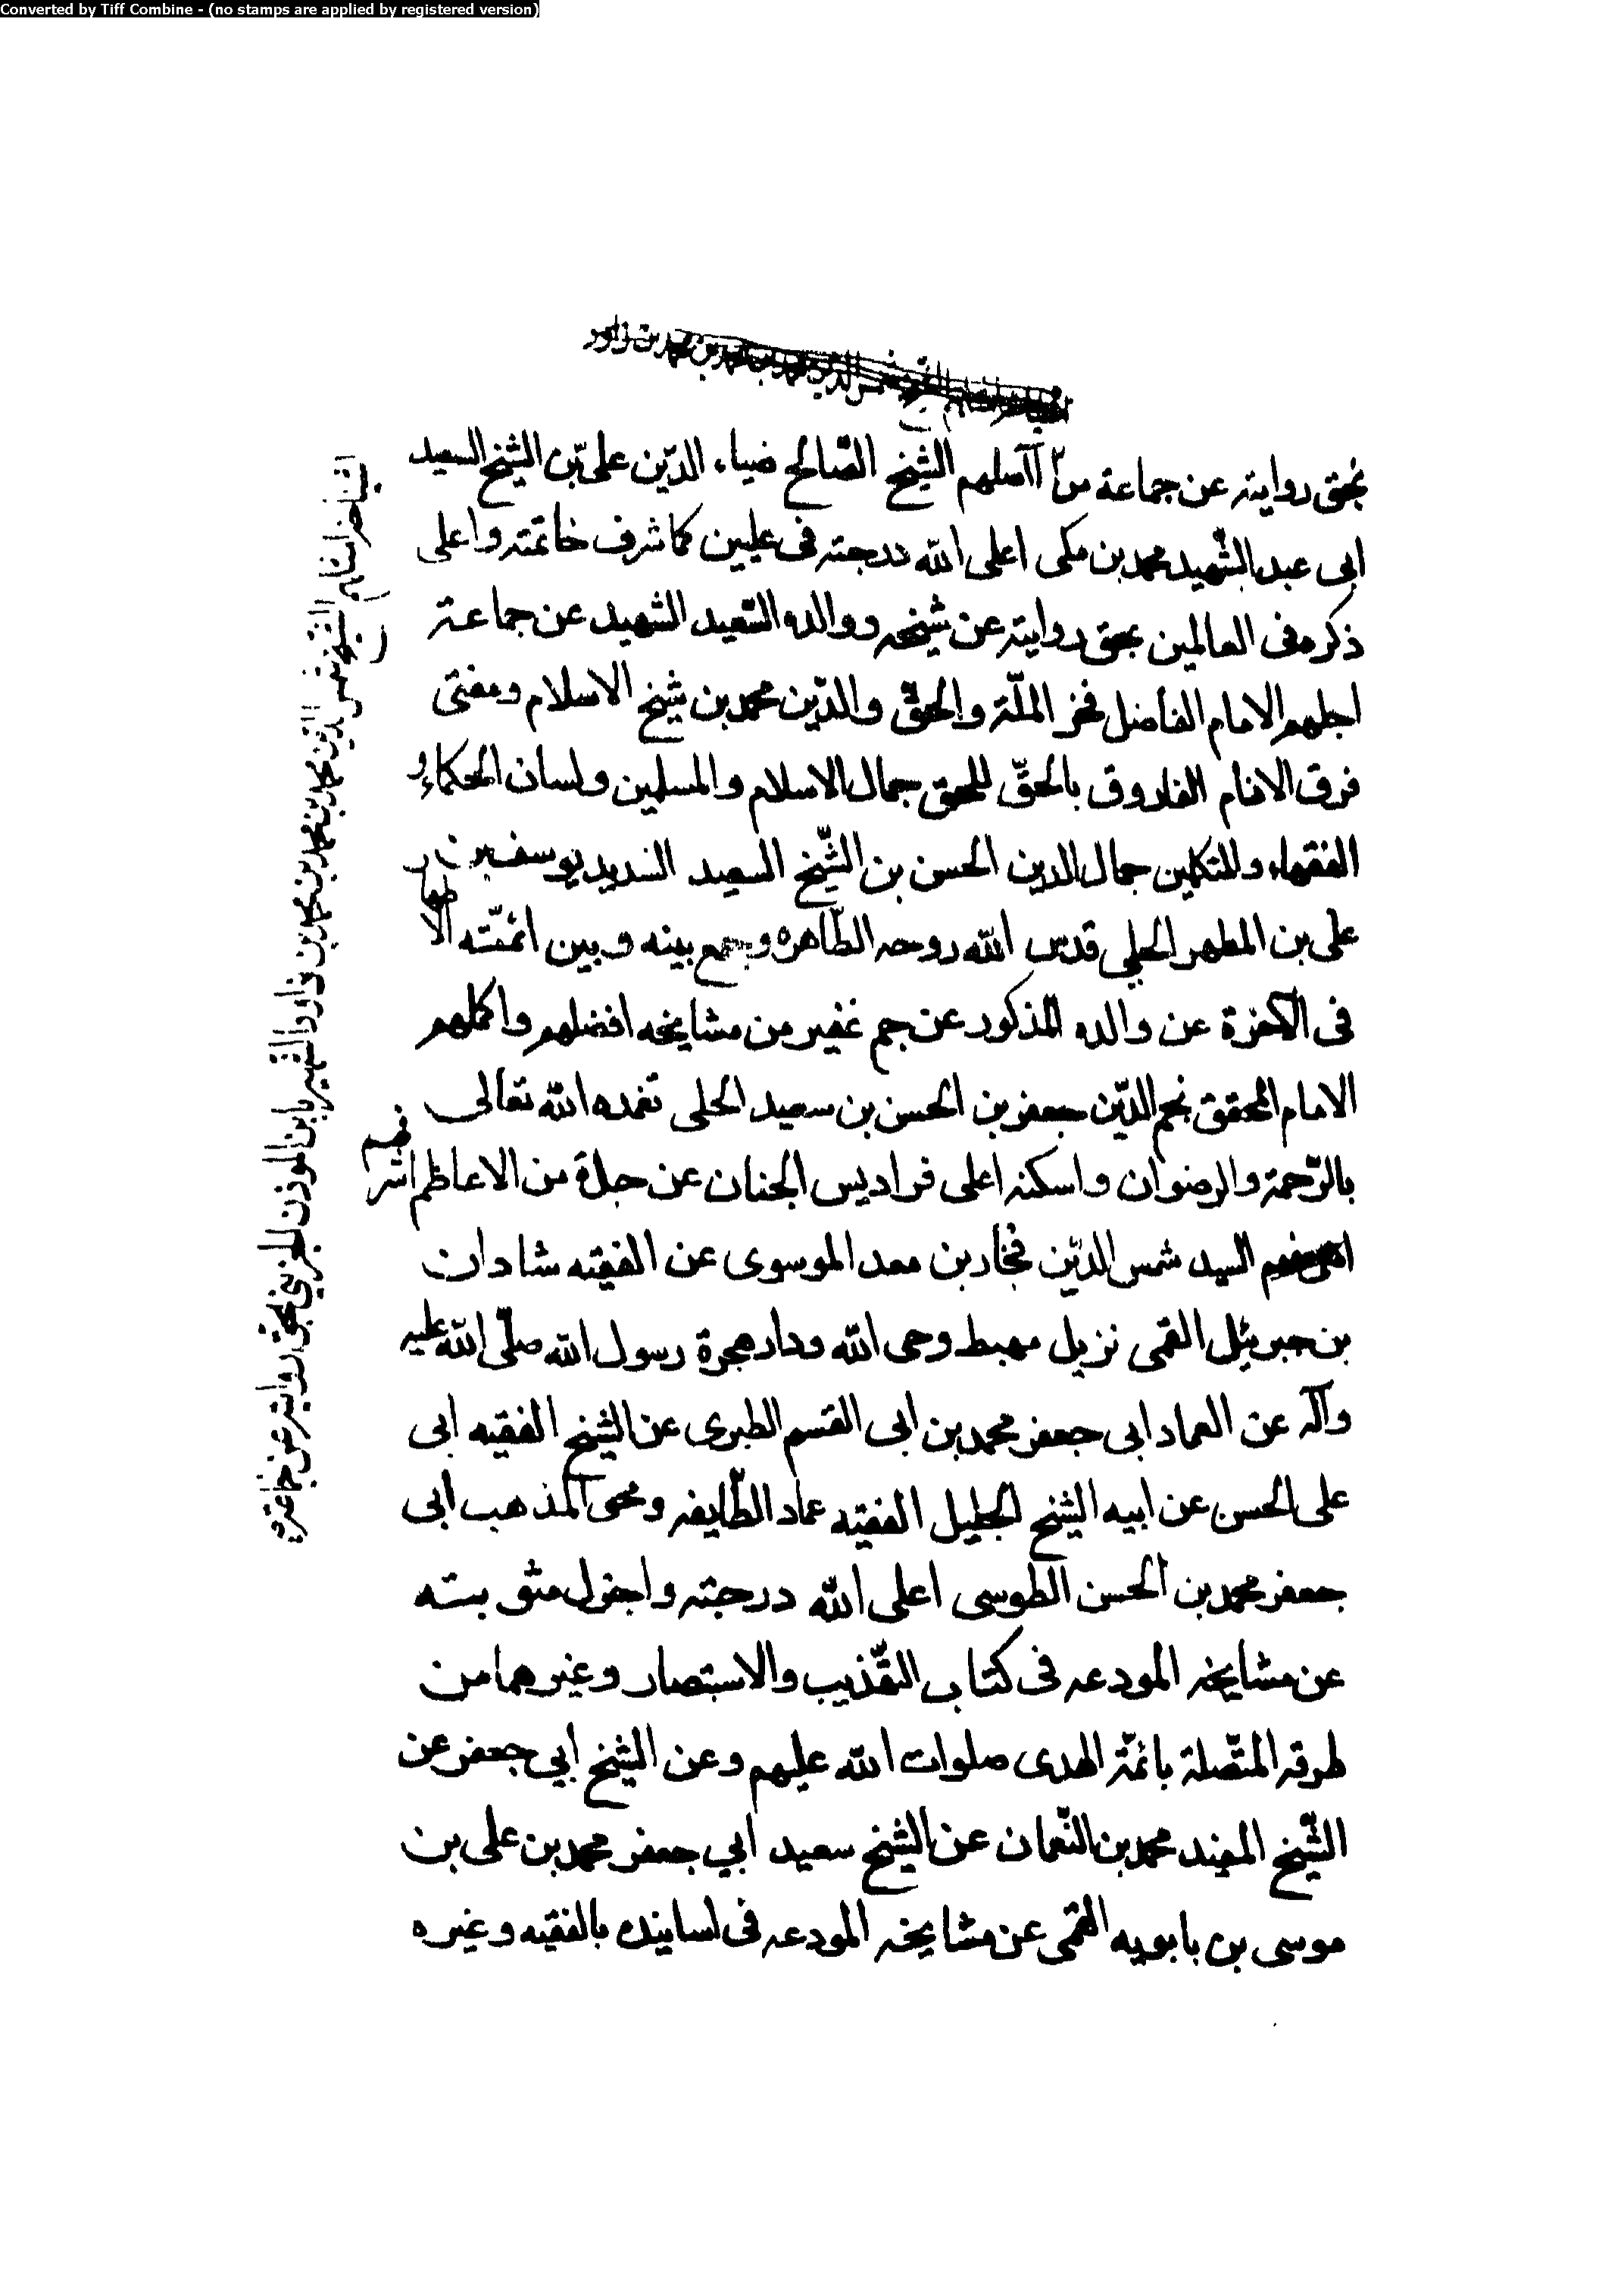 Converted by Tiff Combine - (no stamps are applied by registered version)
شمس الدين محمد بن محمد بن محمد بن داود
بحق روايته عن جماعة من الشيخ الصّالح ضياء الدّين على بن الشيخ السعيد
ابى عبد الشّهيد محمد بن مكى اعلى الله درجته فى عليين كما شرف خاتمته واعلى
ذكره فى العالمين بحق روايته عن شيخه ووالده السّعيد الشهيد عن جماعة
اجلهم الامام الفاضل فخر الملّة والحقّ والدّين محمد بن شيخ الاسلام ومفتى
فرق الانام الفاروق بالحقّ للحق جمال الاسلام والمسلمين ولسان الحكماء و
الفقهاء والمتكلمين جمال الدين الحسن بن الشّيخ السعيد السديد يوسف بن
على بن المطهر الحلى قدس الله روحه الطّاهره وجمع بينه وبين ائمّته الاطهار
فى الآخرة عن والده المذكور عن جم غفير من مشايخه افضلهم واكملهم
الامام المحقق نجم الدّين جعفر بن الحسن بن سعيد الحلى تغمده الله تعالى
بالرّحمة والرضوان واسكنه اعلى فراديس الجنان عن جلة من الاعاظم اشرفهم
السيد شمس الدّين فخار بن معد الموسوى عن الفقيه شادان
بن جبرئيل القمى نزيل مهبط وحى الله ودار هجرة رسول الله صلّى الله عليه
وآله عن العماد ابى جعفر محمد بن ابى القسم الطبرى عن الشيخ الفقيه ابى
على الحسن عن ابيه الشيخ الجليل الفقيه عماد الطّايفه ومحى المذهب ابى
جعفر محمد بن الحسن الطوسى اعلى الله درجته واجزل مثوبته
عن مشايخه المودعه فى كتاب التهّذيب والاستبصار وغيرهما من
طرقه المتّصلة بائمّة الهدى صلوات الله عليهم وعن الشيخ ابي جعفر عن
الشّيخ المفيد محمد بن النّعمان عن الشيخ سعيد ابي جعفر محمد بن على بن
موسى بن بابويه القمى عن مشايخه المودعه فى اسانيده بالفقيه وغيره
الشيخ شمس الدين محمد بن محمد بن محمد بن داود الشهير بابن الموذن الجزينى بحق روايته عن جماعة